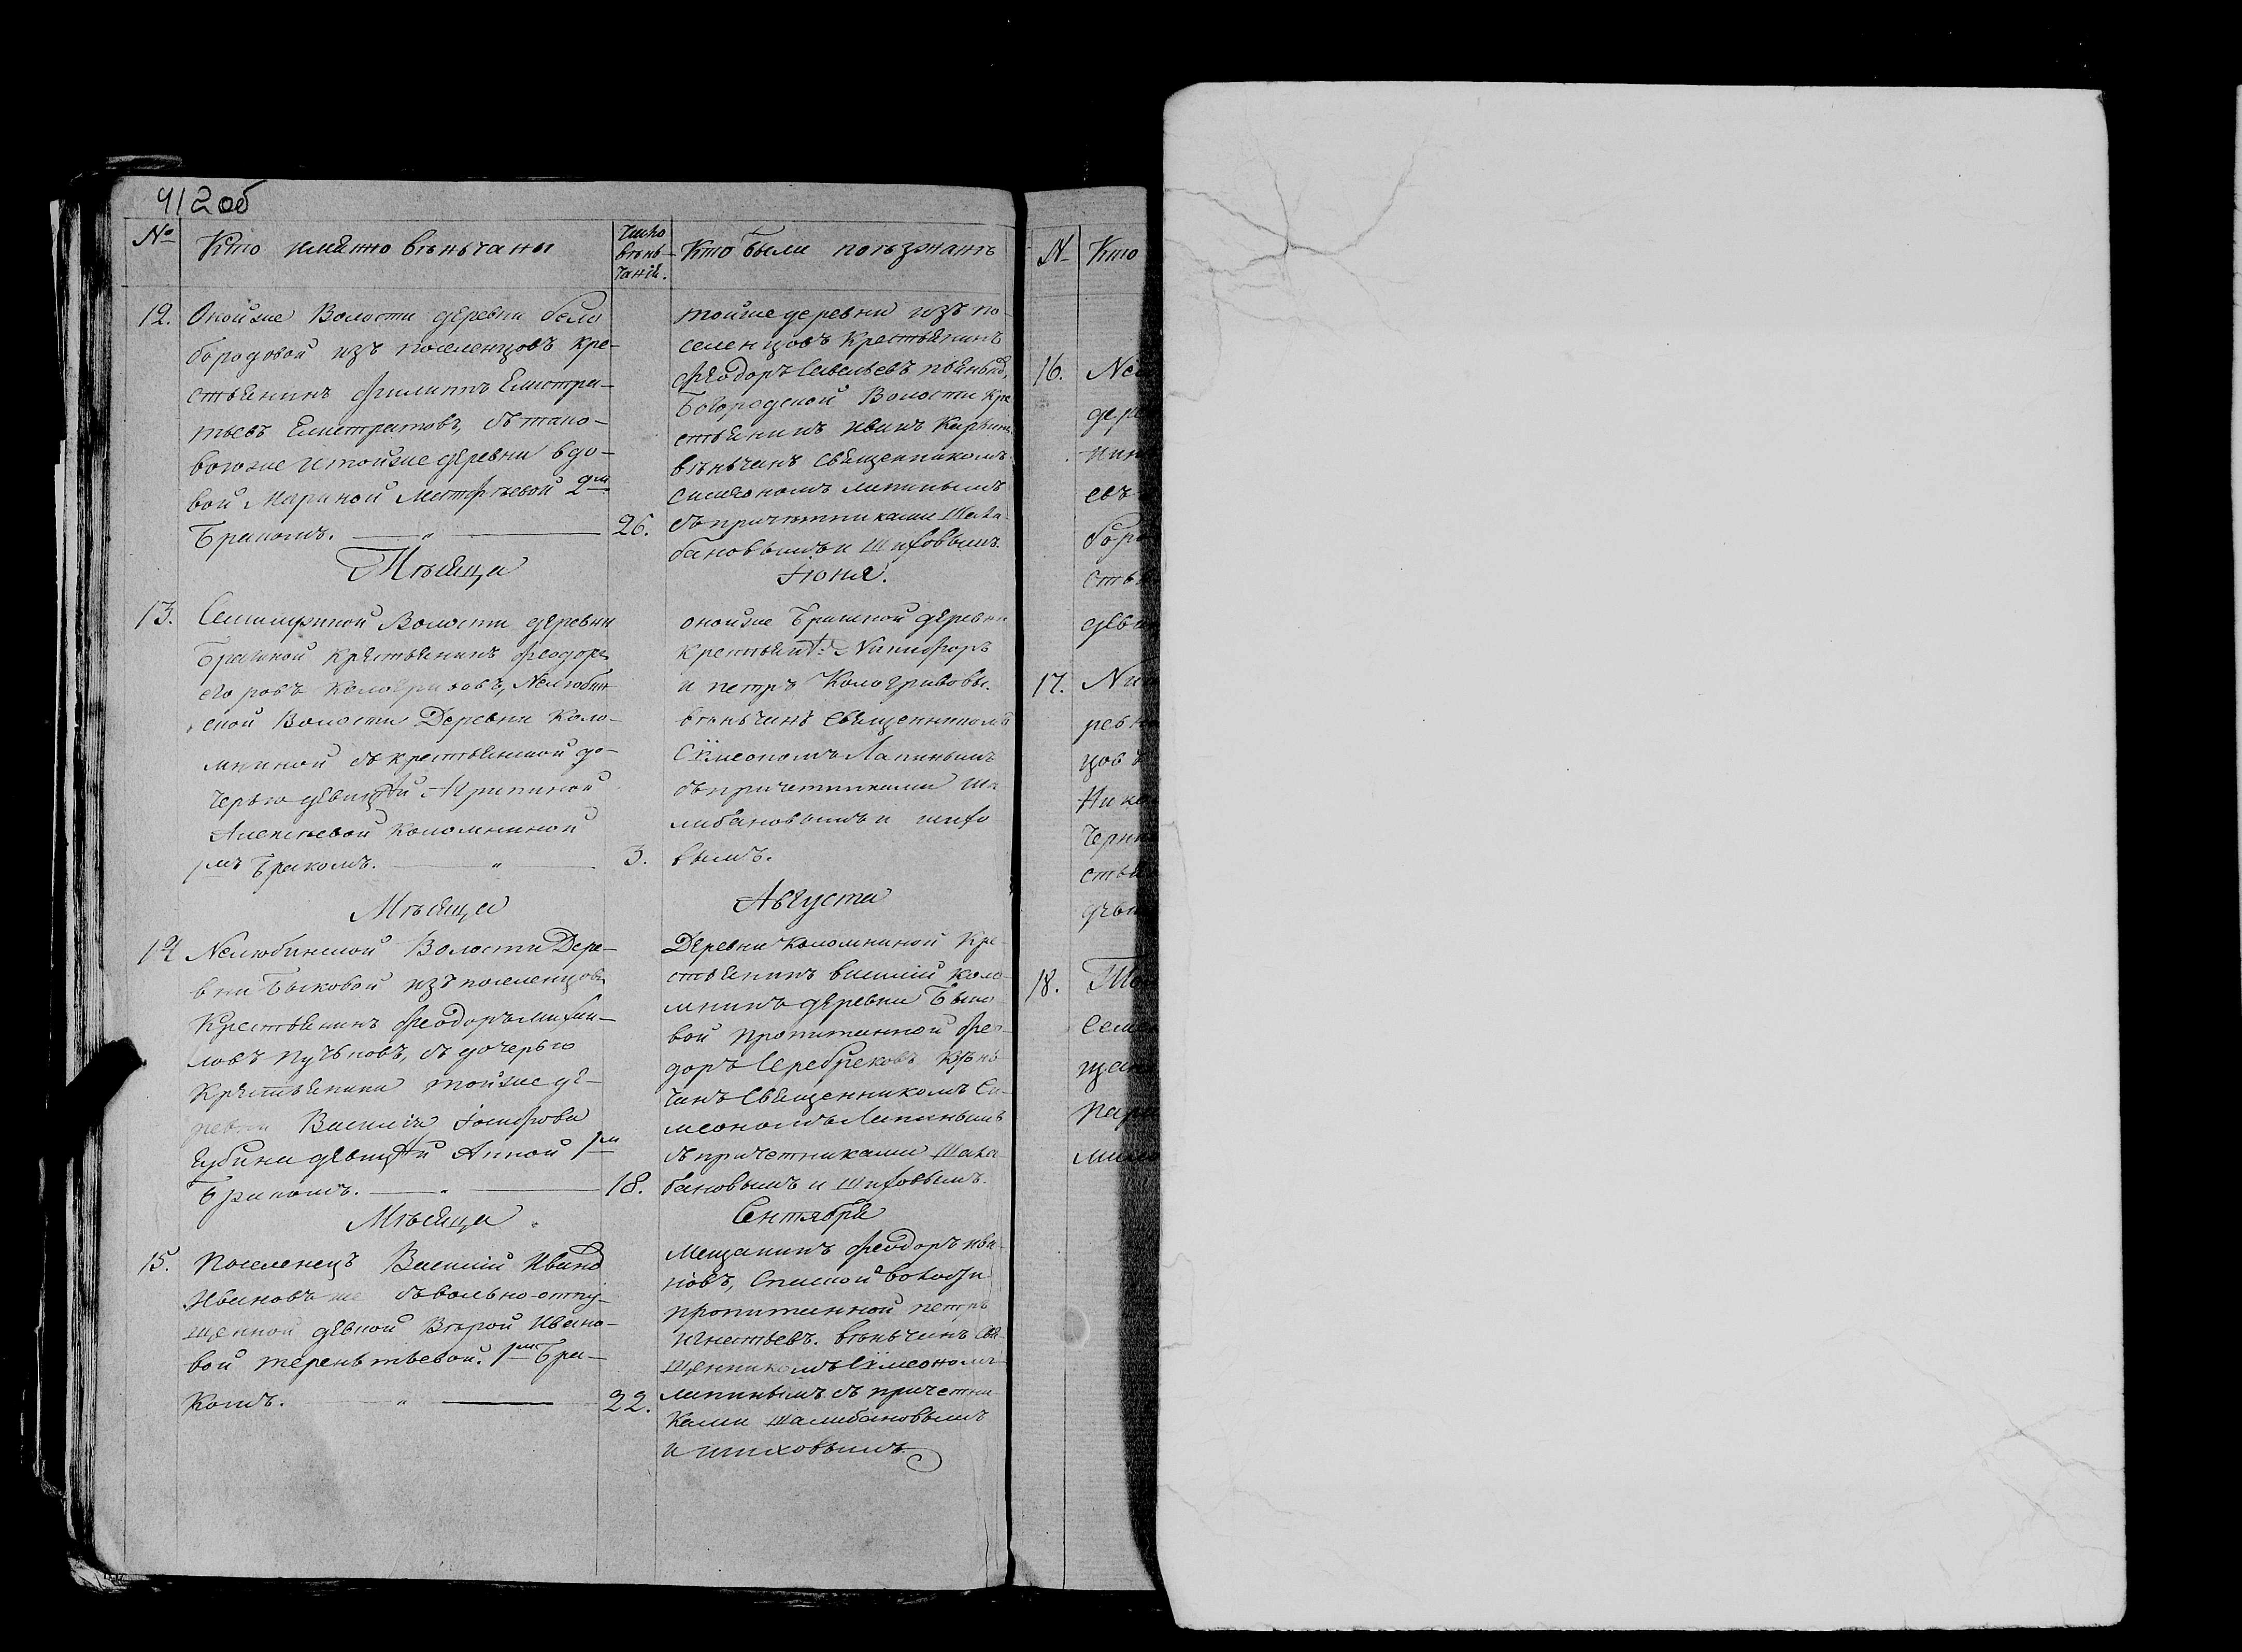 412 об
№
Кто имянно вѣнчаны
Число
вѣнь-
чанiй.
Кто были поѣзжанѣ
12.
Окойже Волости деревни бело
бородовой изъ поселенцовъ кре-
стьянинъ Филиппъ Елистра-
тьевъ Елистратовъ, съ тако-
воюже и тойже деревни вдо-
вой Мариной 2мъ
Бракомъ. — „ —
26.
тойже деревни изъ по-
селенцовъ Крестьянинъ
Феодоръ Савельевъ
Богородской Волости Кре
стьянинъ Иванъ
вѣньчанъ Священникомъ
Симеономъ Лапинымъ
съ причетниками Шала-
бановымъ и Шиховымъ.
Мѣсяца
Iюня.
13.
Семилужной Волости деревни
Крестьянинъ Феодоръ
Егоровъ Кологривовъ, Нелюбин
ской Волости Деревни Коло-
мниной съ крестьянской до-
черью девицей Агрипиной
Алексѣевой Коломниной
1мъ Бракомъ. — „ —
3.
онойже деревни
Никифоръ
и петръ Кологривовы.
вѣньчанъ Священникомъ
Сѵмеономъ Лапинымъ
съ причетниками Ша
лабановымъ и шихо
вымъ.
Мѣсяца
Августа
14
Нелюбинской Волости Дере-
вни Быковой изъ поселенцовъ
Крестьянинъ Феодоръ Михаи-
ловъ съ дочерью
Крестьянина тойже де-
ревни Василья
Губина девицей Анной 1мъ
Бракомъ. — „ —
18.
Деревни Коломниной Кре-
стьянинъ Василiй Коло-
мнинъ деревни Быко
вой пропитанной Фео-
доръ Серебряковъ Вѣнь
чанъ Священникомъ Си-
меономъ Лапинымъ
съ причетниками Шала
бановымъ и Шиховымъ.
Мѣсяца
Сентября
15.
Поселенецъ Василiй Иванъ
Ивановъ съ вольно-отпу-
щенной девкой Ивано-
вой терентьевой. 1мъ Бра-
комъ. — „ —
22.
Мещанинъ Феодоръ Ива-
новъ, Спаской волости
пропитанной петръ
Игнатьевъ. вѣньчанъ Свя-
щенникомъ Сѵмеономъ
Лапинымъ съ причетни-
ками шалабановымъ
и шиховымъ
№
Кто
16.
17.
18.